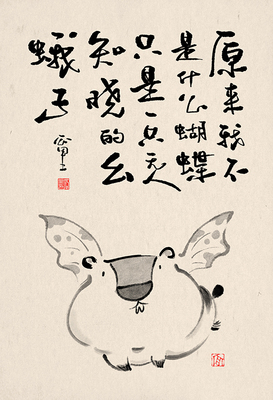 原来我不
是什么蝴蝶
只是一只无人
知晓的幺
蛾子